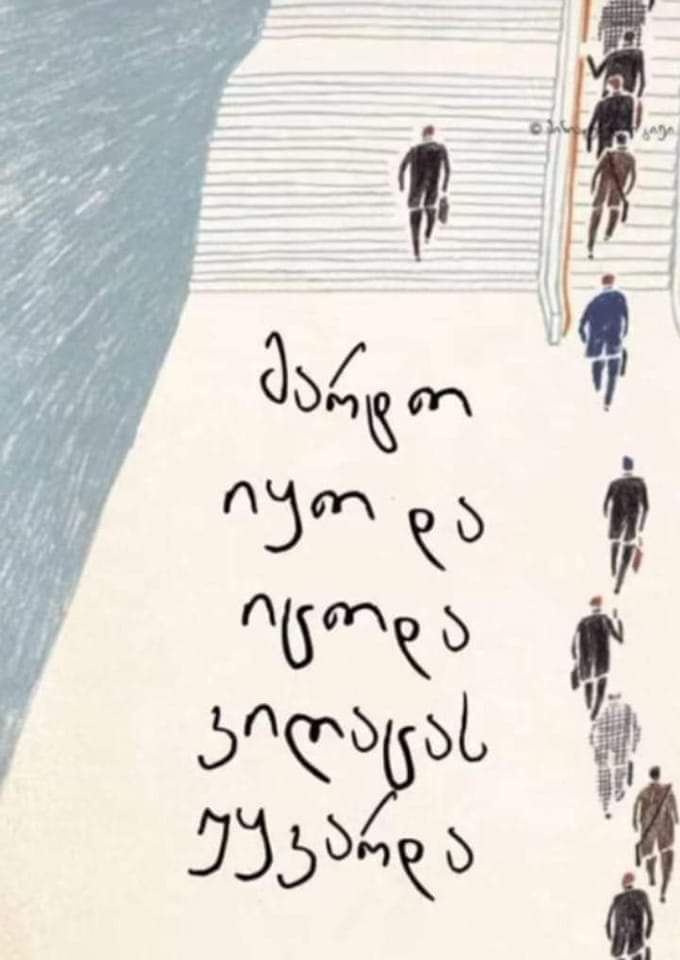 მარტო
იყო და
იცოდა
ვიღაცას
უყვარდა